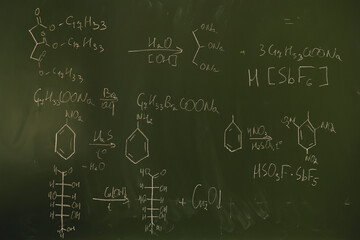 O O-C17H33
O-C17H33
O-C17H33
H2O
[OH]
ONa
ONa
ONa
+ 3C17H33COONa
H [SbF6]
C17H33COONa Br2 C17H33Br2COONa
aq
NO2
H2S
t°
-H2O
NH2
HNO3
H2SO4, t°
O2N
NO2
NO2
HSO3F-SbF5
H O
H OH
HO H
H OH
H OH
OH
Cu[OH]2
t
+ Cu2O↓